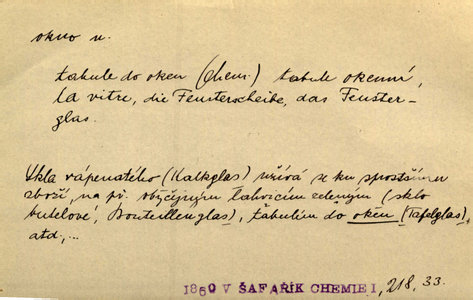 okno n.
tabule do oken (chem.) tabule okenní,
la vitre, die Fensterscheibe, das Fenster-
glas.
Skla vápenatého (Kalkglas) užívá se ku sprostšímu
zboží, na př. obyčejným lahvicím zeleným (sklo
butelové, Bouteillenglas), tabulím do oken (Tafelglas),
atd,...
1860 V ŠAFAŘÍK CHEMIE I, 218, 33.